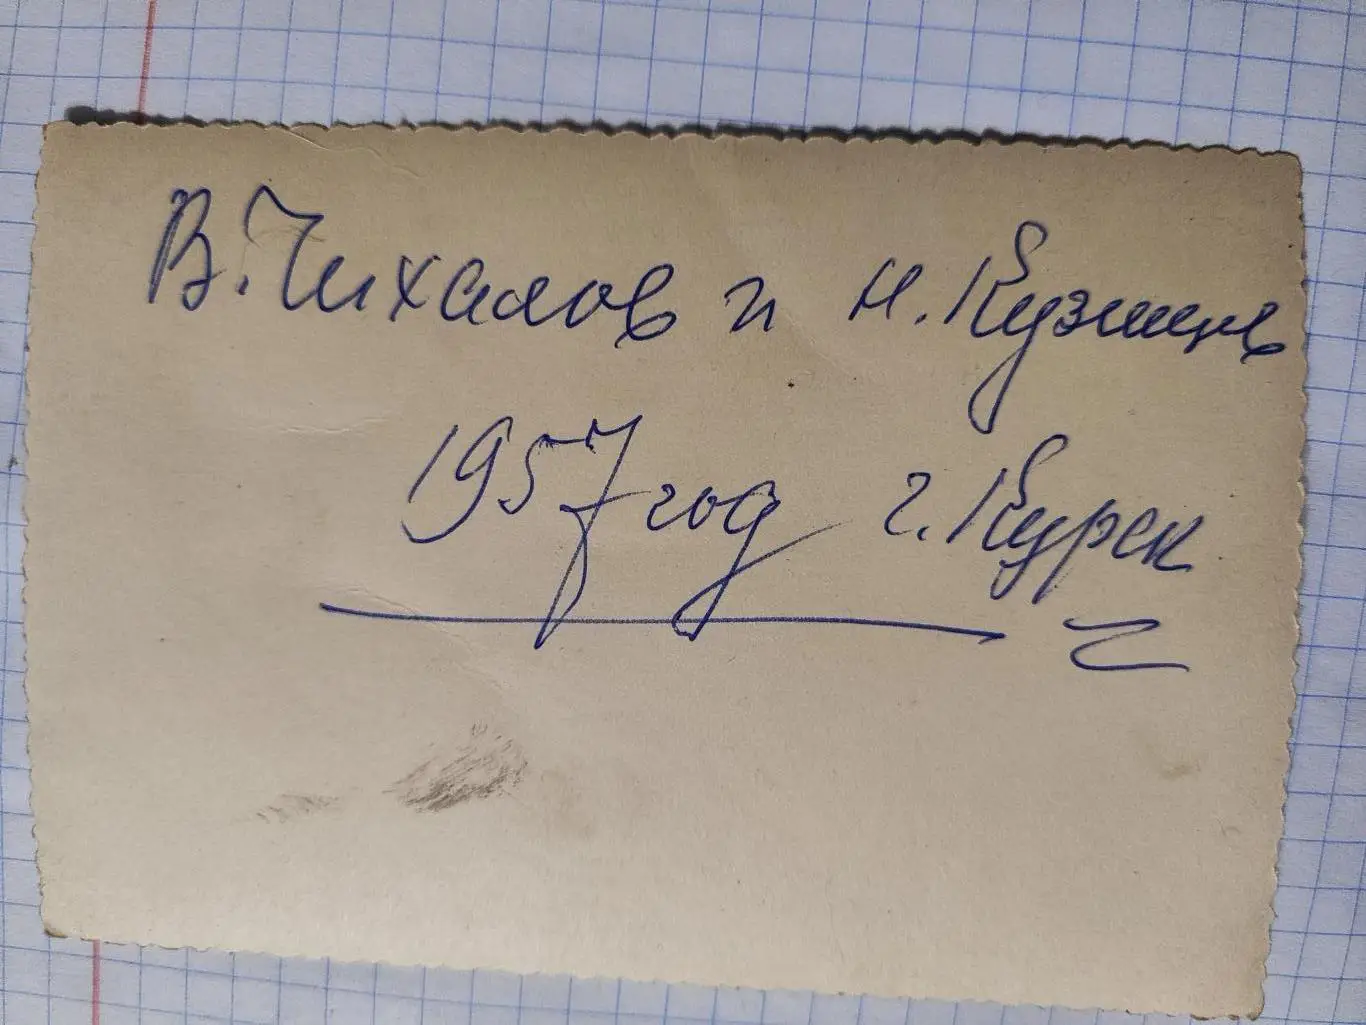 В. Чихалов и Н. Кузнецов
1957 год г. Курск